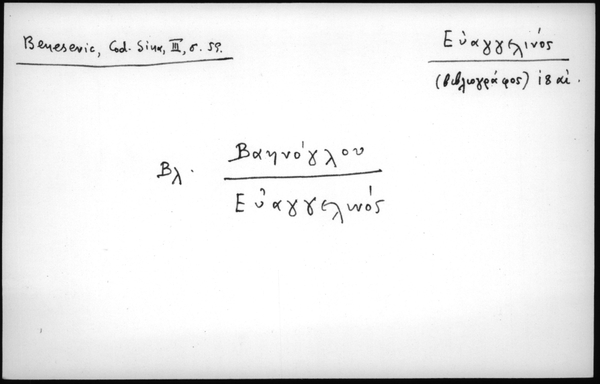 Benesevic, Cod. Sin., III, σ. 59.
Εὐαγγελινός
(βιβλιογράφος) 18 αἰ.
Βλ. Βαηνόγλου
Εὐαγγελινός